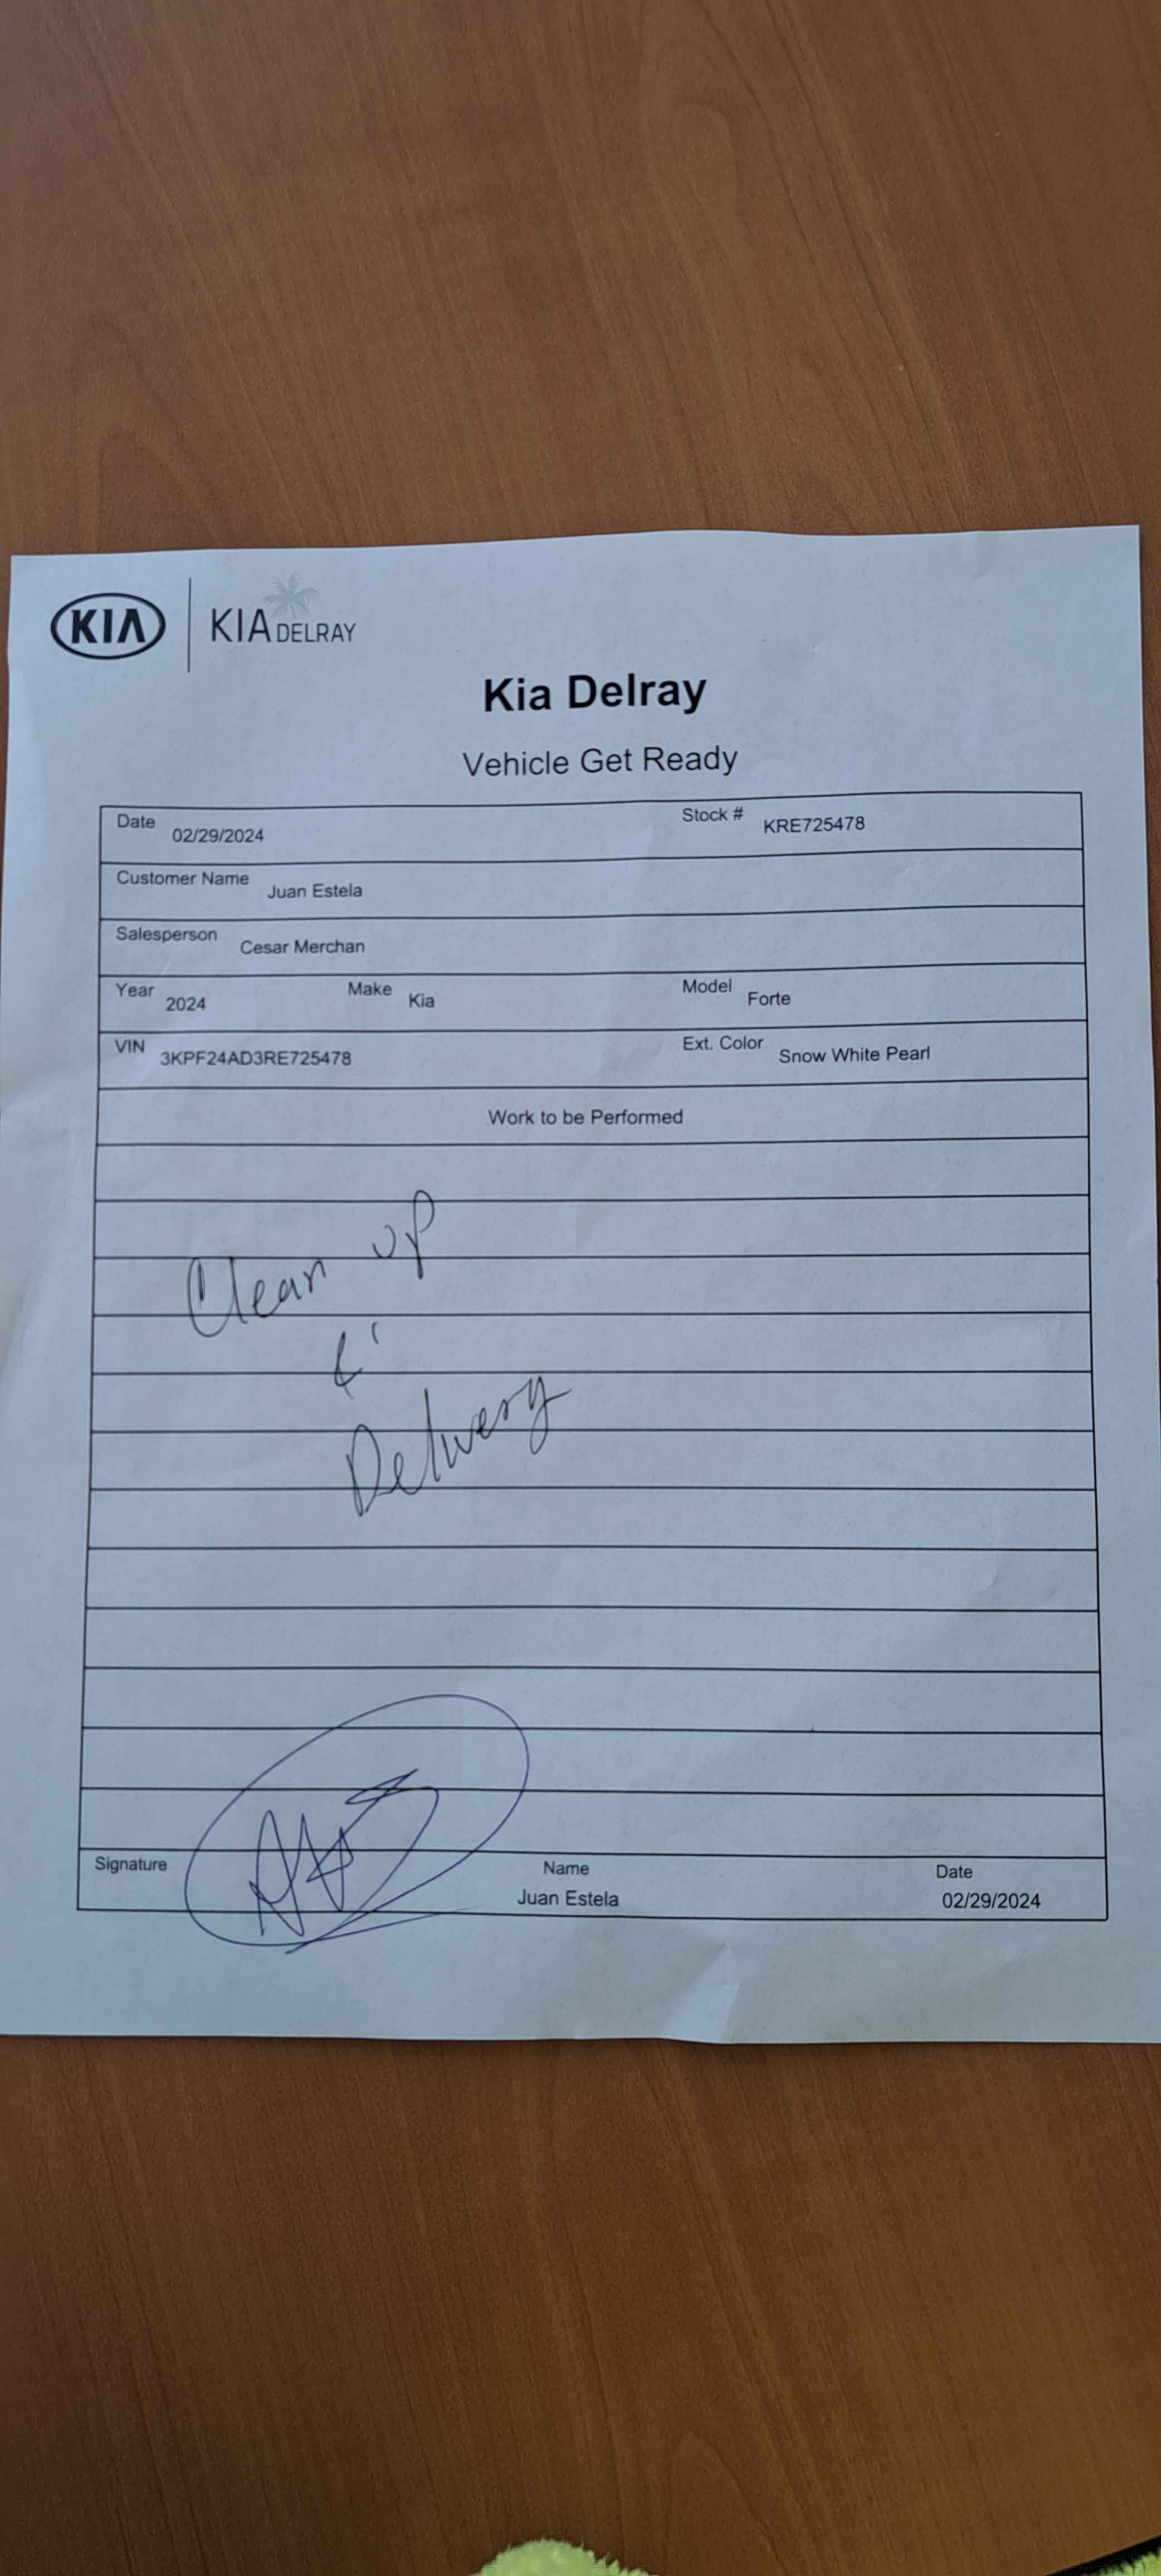 KIA KIA DELRAY
Kia Delray
Vehicle Get Ready
Date 02/29/2024 Stock # KRE725478
Customer Name Juan Estela
Salesperson Cesar Merchan
Year 2024 Make Kia Model Forte
VIN 3KPF24AD3RE725478 Ext. Color Snow White Pearl
Work to be Performed
Clean up
&
Delivery
Signature Name Date
Juan Estela 02/29/2024